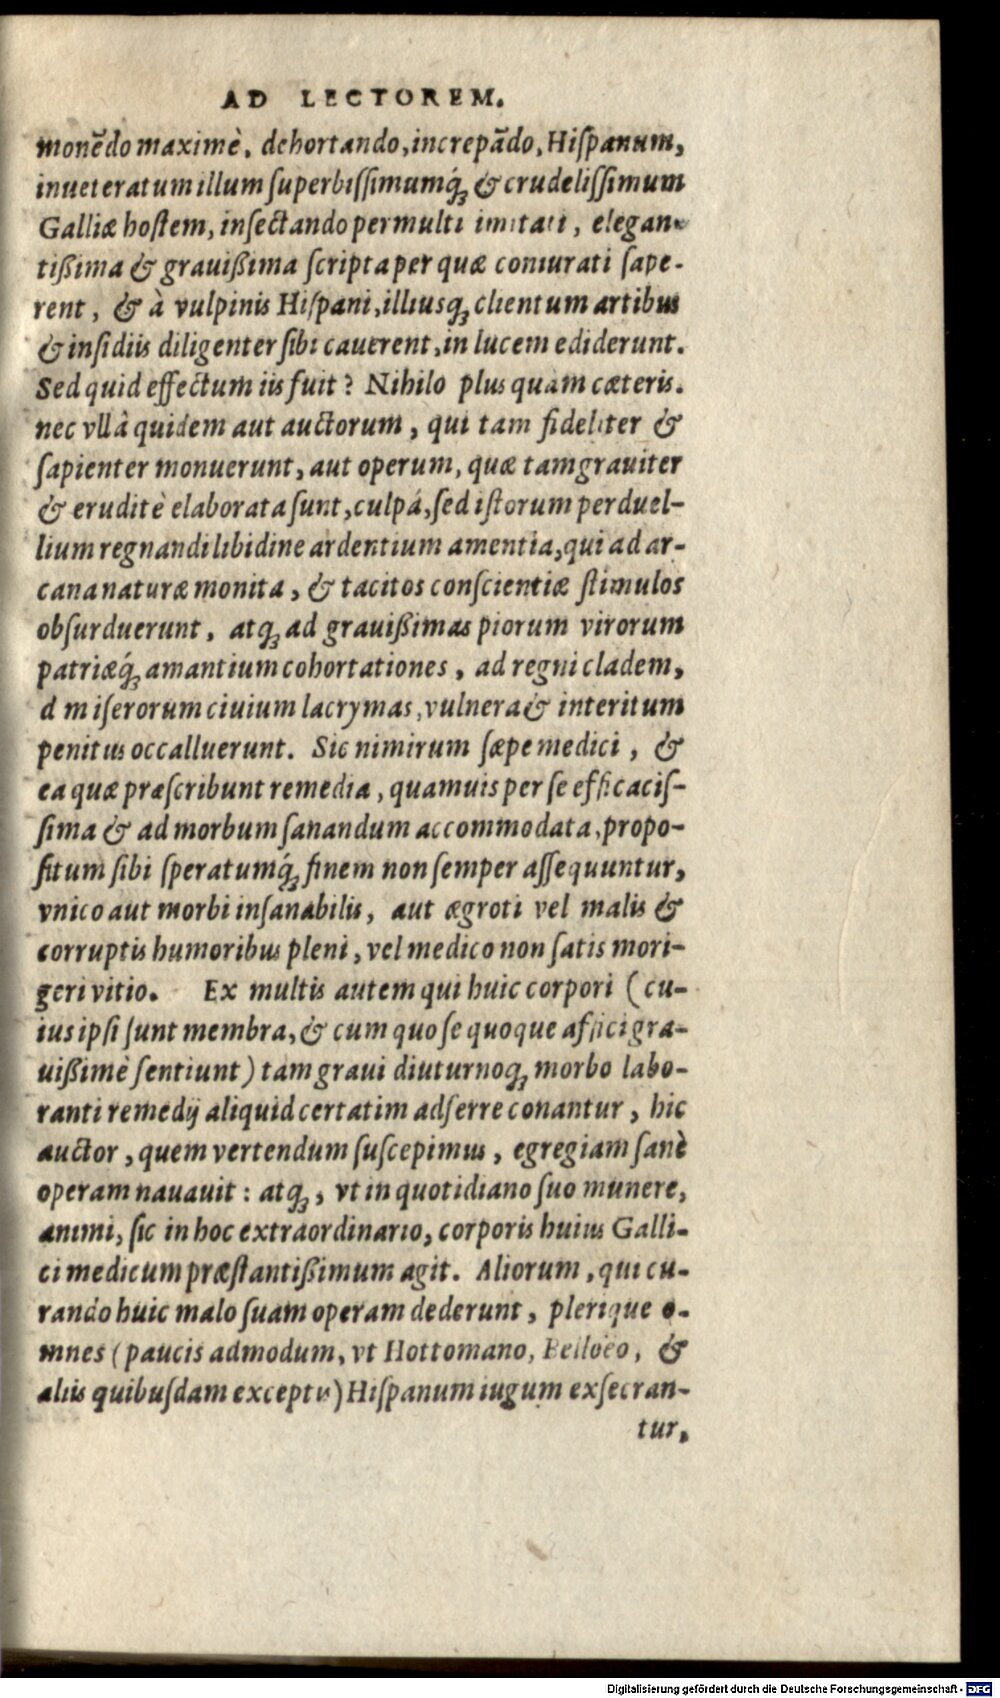 AD LECTOREM.
monẽdo maximè, dehortando, increpãdo, Hiſpanum,
inueteratum illum ſuperbiſſimumq́ꝫ & crudeliſſimum
Galliæ hoſtem, inſectando permulti imitati, elegan-
tißima & grauißima ſcripta per quæ coniurati ſape-
rent, & à vulpinis Hiſpani, illiusqꝫ clientum artibus
& inſidiis diligenter ſibi cauerent, in lucem ediderunt.
Sed quid effectum iis fuit? Nihilo plus quam cæteris.
nec vllâ quidem aut auctorum, qui tam fideliter &
ſapienter monuerunt, aut operum, quæ tam grauiter
& eruditè elaborata ſunt, culpá, ſed iſtorum perduel-
lium regnandi libidine ardentium amentia, qui ad ar-
cana naturæ monita, & tacitos conſcientiæ ſtimulos
obſurduerunt, atqꝫ ad grauißimas piorum virorum
patriæq́ꝫ amantium cohortationes, ad regni cladem,
d miſerorum ciuium lacrymas, vulnera & interitum
penitus occalluerunt. Sic nimirum ſæpe medici, &
ea quæ præſcribunt remedia, quamuis per ſe efficaciſ-
ſima & ad morbum ſanandum accommodata, propo-
ſitum ſibi ſperatumq́ꝫ finem non ſemper aſſequuntur,
vnico aut morbi inſanabilis, aut ægroti vel malis &
corruptis humoribus pleni, vel medico non ſatis mori-
geri vitio. Ex multis autem qui huic corpori (cu-
ius ipſi ſunt membra, & cum quo ſe quoque affici gra-
uißimè ſentiunt) tam graui diuturnoqꝫ morbo labo-
ranti remedij aliquid certatim adferre conantur, hic
auctor, quem vertendum ſuſcepimus, egregiam ſanè
operam nauauit: atqꝫ, vt in quotidiano ſuo munere,
animi, ſic in hoc extraordinario, corporis huius Galli-
ci medicum præſtantißimum agit. Aliorum, qui cu-
rando huic malo ſuam operam dederunt, plerique o-
mnes (paucis admodum, vt Hottomano, Belloëo, &
aliis quibuſdam exceptis) Hiſpanum iugum exſecran-
tur,
Digitalisierung gefördert durch die Deutsche Forschungsgemeinschaft - DFG